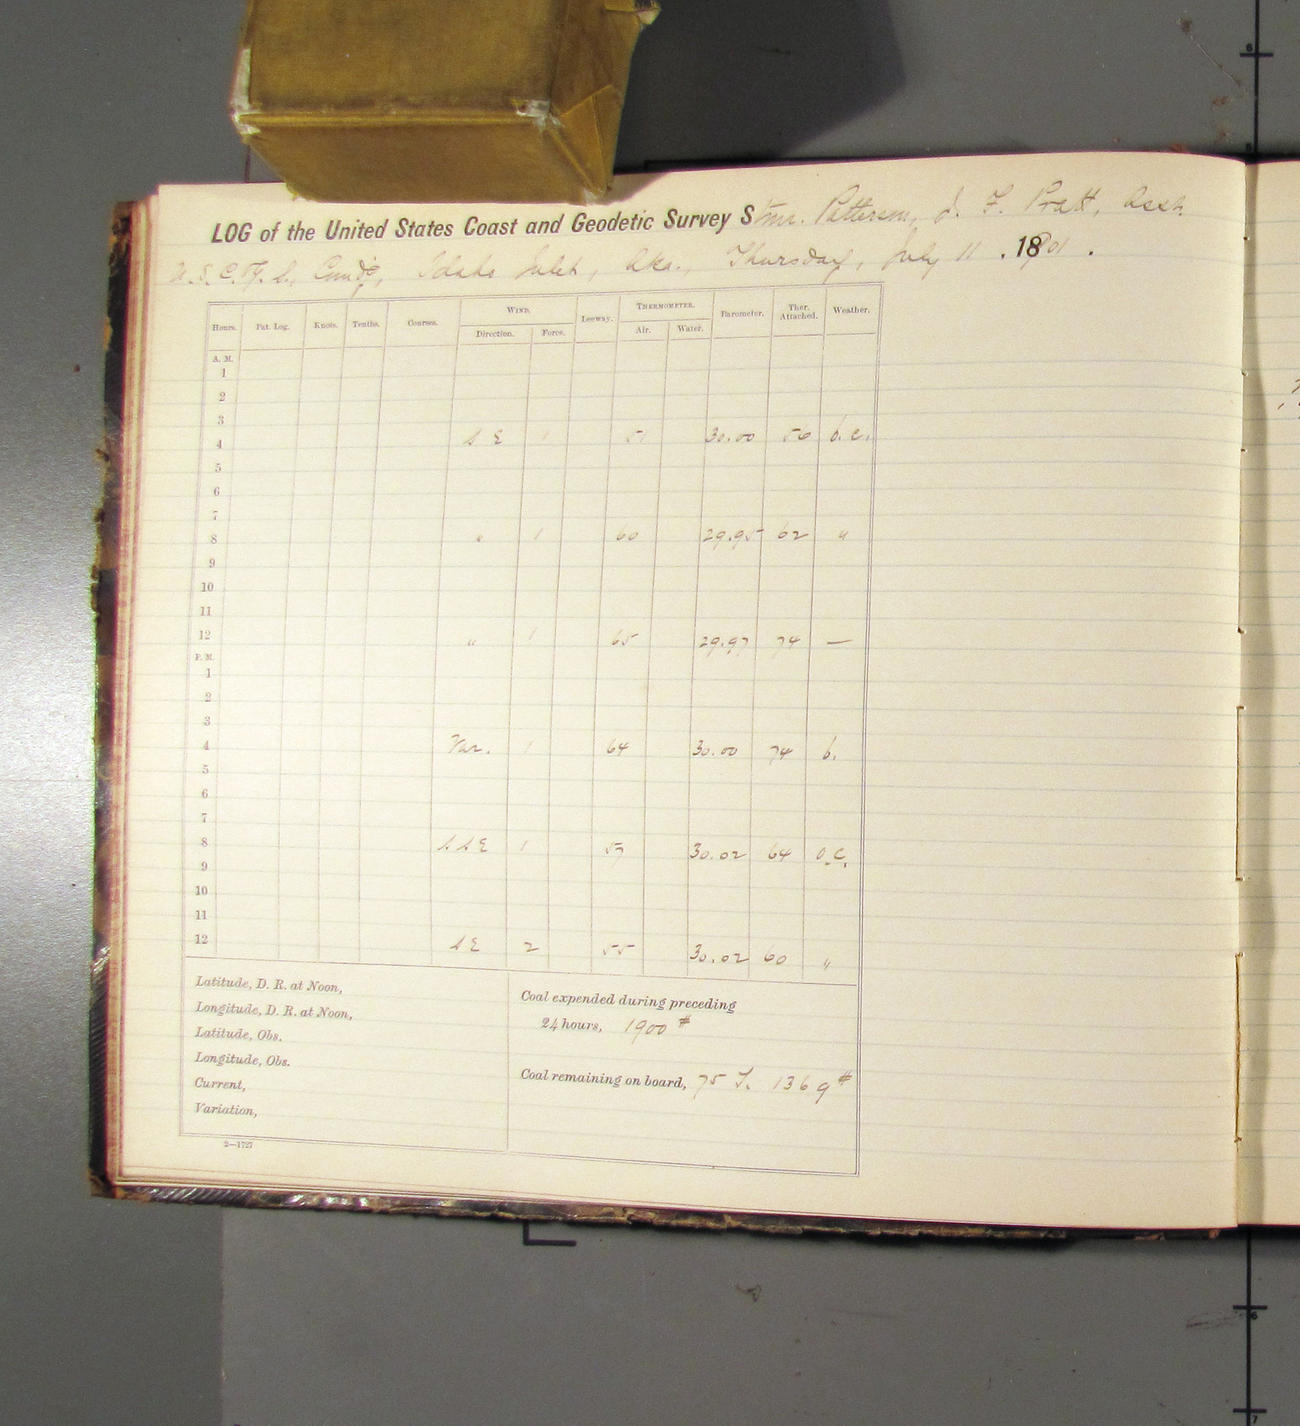 LOG of the United States Coast and Geodetic Survey Stmr. Patterson, J. F. Pratt, Asst.
U.S.C.&G.S., Comd'g, Idaho Inlet, Aka., Thursday, July 11 . 1901 .
Hours. Pat. Log. Knots. Tenths. Courses. WIND. Leeway. THERMOMETER. Barometer. Ther. Attached. Weather.
Direction. Force. Air. Water.
A. M.
1
2
3
4 S E 1 51 30.00 56 b.c.
5
6
7
8 " 1 60 29.95 62 "
9
10
11
12 " 1 65 29.97 74 —
P. M.
1
2
3
4 Var. 1 64 30.00 74 b.
5
6
7
8 S S E 1 57 30.02 64 o.c.
9
10
11
12 S E 2 55 30.02 60 "
Latitude, D. R. at Noon,
Longitude, D. R. at Noon,
Latitude, Obs.
Longitude, Obs.
Current,
Variation,
Coal expended during preceding
24 hours, 1900 #
Coal remaining on board, 75 T. 1369 #
2—1727
6
6
7